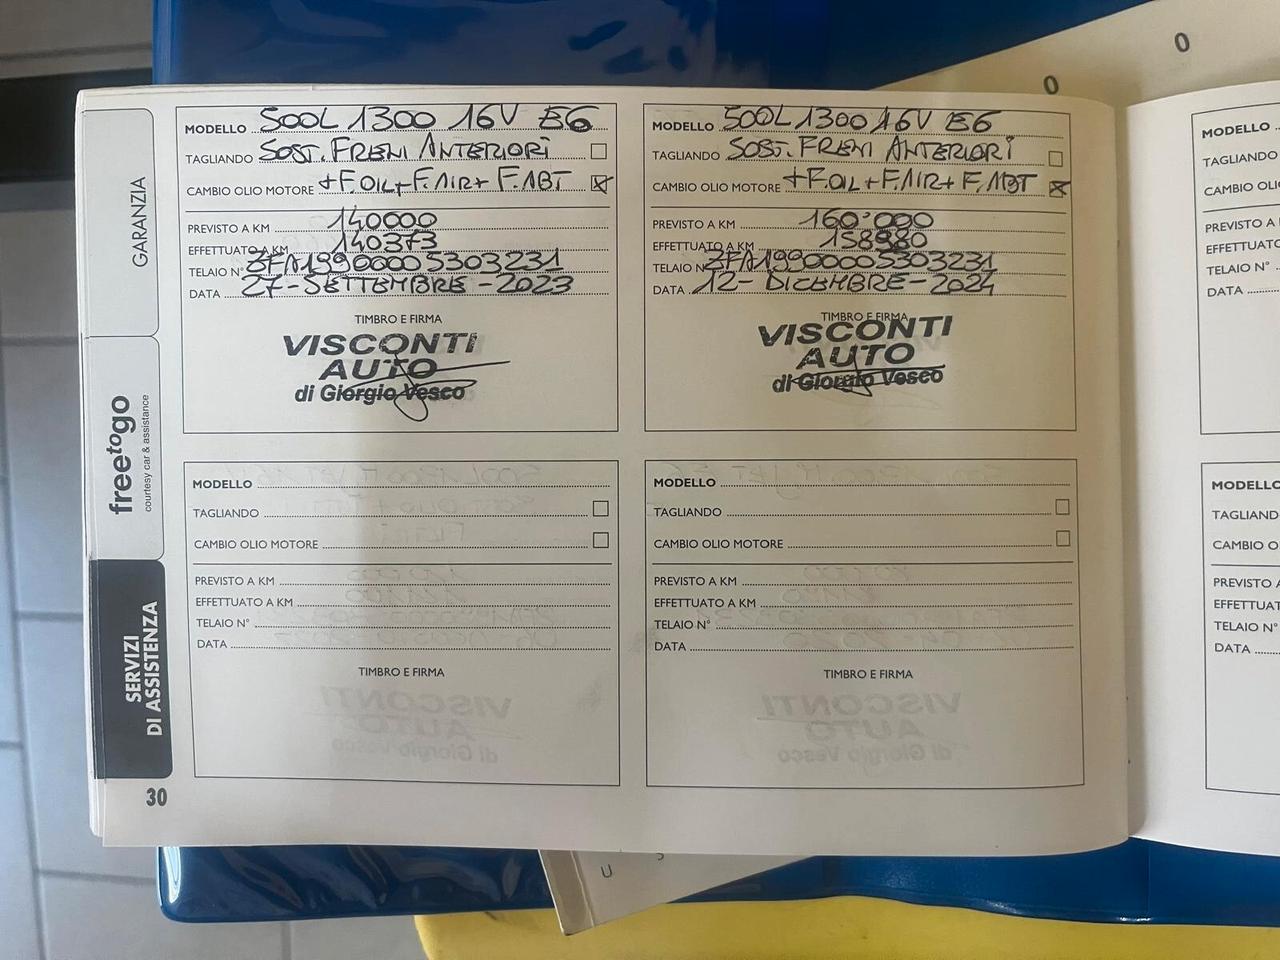 O
O
GARANZIA
freetogo
courtesy car & assistance
SERVIZI
DI ASSISTENZA
30
MODELLO 500L 1300 16V E6
TAGLIANDO SOST. FRENI ANTERIORI
CAMBIO OLIO MOTORE +F.OIL+F.AIR+ F.ABT
PREVISTO A KM 140000
EFFETTUATO A KM 140373
TELAIO N° ZFA19900005303231
DATA 27-SETTEMBRE-2023
TIMBRO E FIRMA
VISCONTI
AUTO
di Giorgio Vesco
MODELLO 500L 1300 16V E6
TAGLIANDO SOST. FRENI ANTERIORI
CAMBIO OLIO MOTORE +F.OIL+F.AIR+F.ABT
PREVISTO A KM 160'000
EFFETTUATO A KM 158980
TELAIO N° ZFA19900005303231
DATA 12-DICEMBRE-2024
TIMBRO E FIRMA
VISCONTI
AUTO
di Giorgio Vesco
MODELLO
TAGLIANDO
CAMBIO OLIO MOTORE
PREVISTO A KM
EFFETTUATO A KM
TELAIO N°
DATA
TIMBRO E FIRMA
MODELLO
TAGLIANDO
CAMBIO OLIO MOTORE
PREVISTO A KM
EFFETTUATO A KM
TELAIO N°
DATA
TIMBRO E FIRMA
MODELLO
TAGLIANDO
CAMBIO OLIO
PREVISTO A KM
EFFETTUATO
TELAIO N°
DATA
MODELLO
TAGLIAND
CAMBIO O
PREVISTO A
EFFETTUAT
TELAIO N°
DATA
U